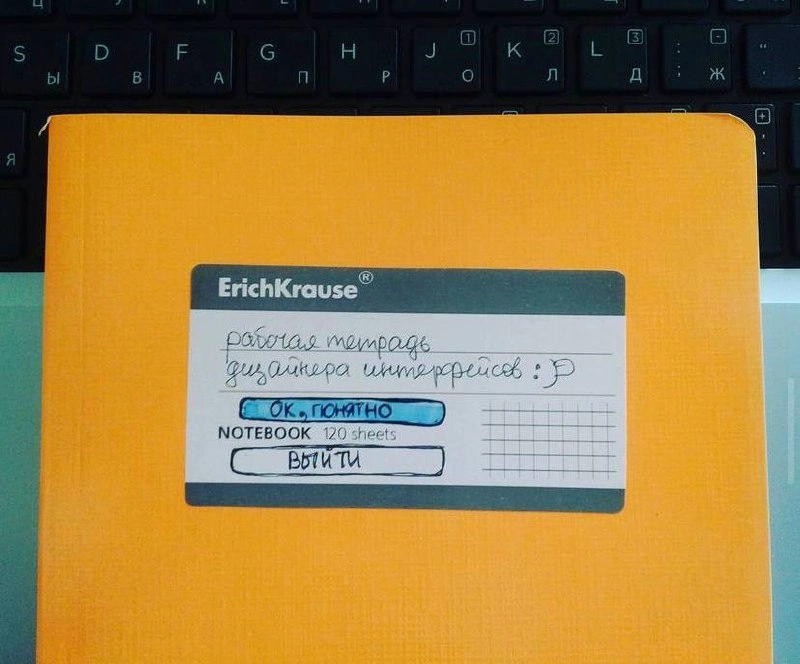 S D F G H J 1 K 2 L 3 : - “
Ы В А П Р О Л ; Д Ж
Я + '
ErichKrause®
рабочая тетрадь
дизайнера интерфейсов :P
ОК, ПОНЯТНО
NOTEBOOK 120 sheets
ВЫЙТИ